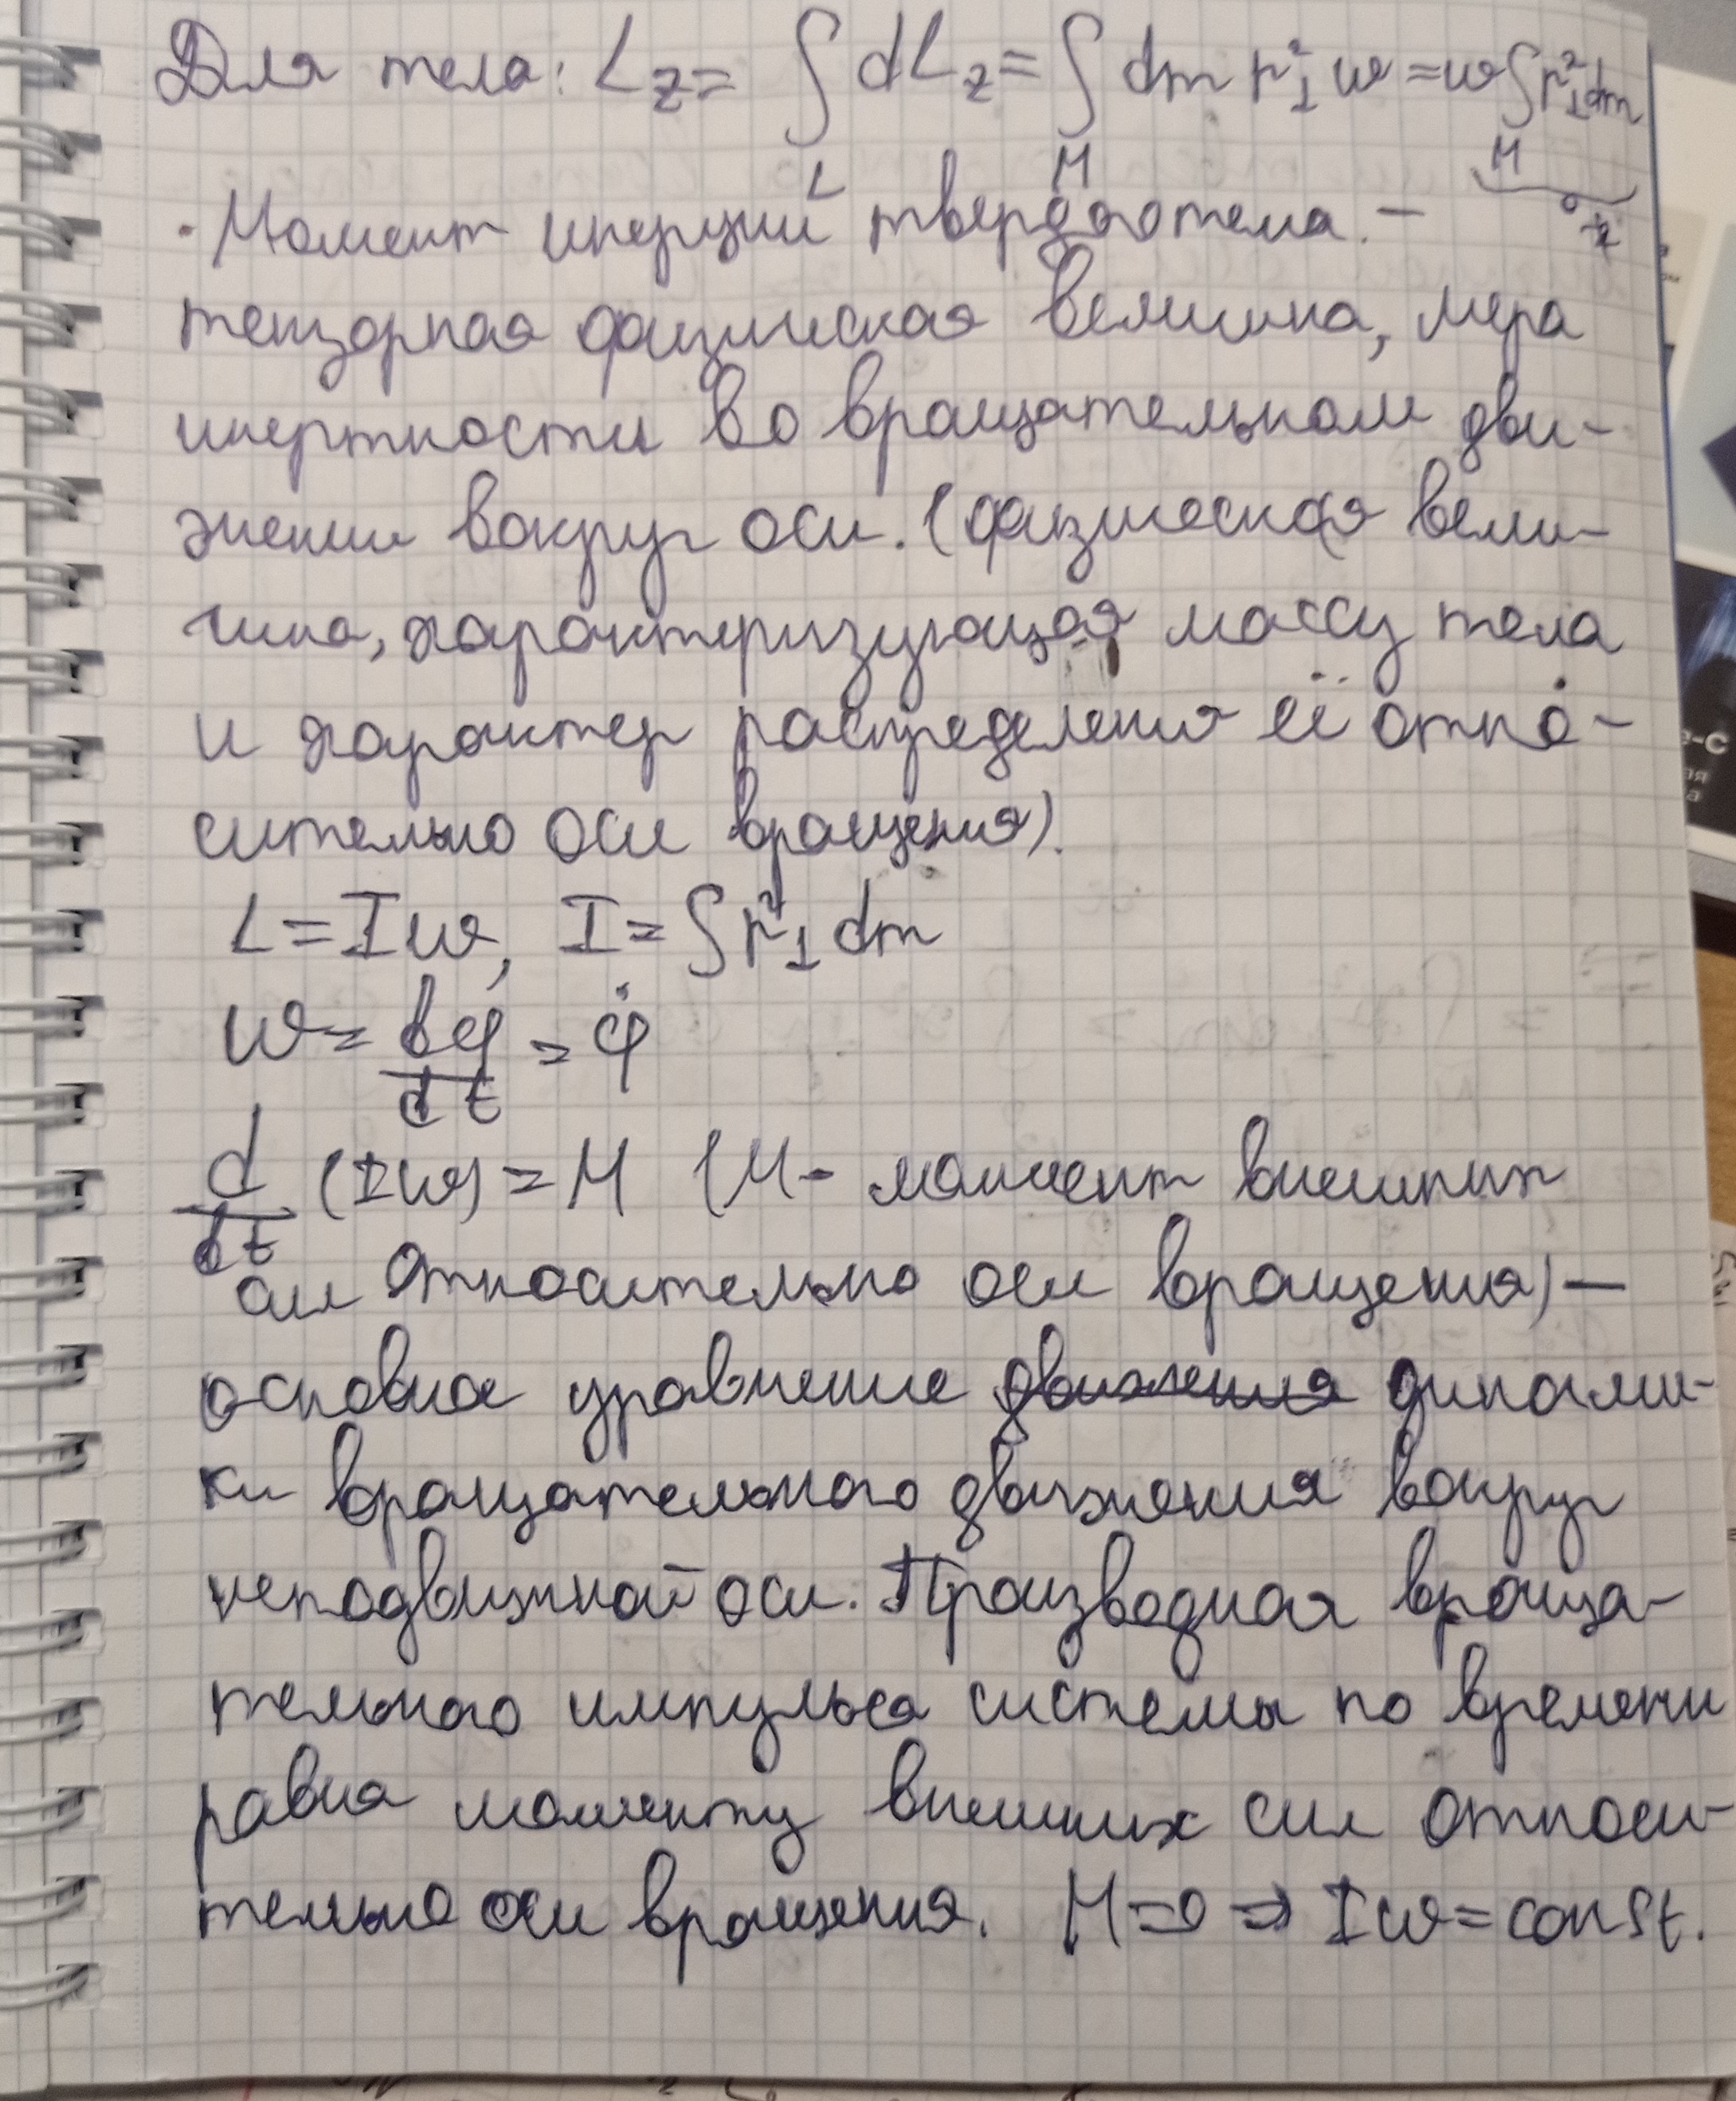 Для тела: L_z = ∫_L dL_z = ∫_M dm r²_⊥ ω = ω ∫_M r²_⊥ dm
· Момент инерции твердого тела. –
тензорная физическая величина, мера
инертности во вращательном дви-
жении вокруг оси. (физическая вели-
чина, характеризующая массу тела
и характер распределения её отно-
сительно оси вращения).
L = Iω, I = ∫ r²_⊥ dm
ω = dφ/dt = φ̇
d/dt (Iω) = M (M - момент внешних
сил относительно оси вращения) –
основное уравнение движения динами-
ки вращательного движения вокруг
неподвижной оси. Производная враща-
тельного импульса системы по времени
равна моменту внешних сил относи-
тельно оси вращения. M=0 ⇒ Iω=const.